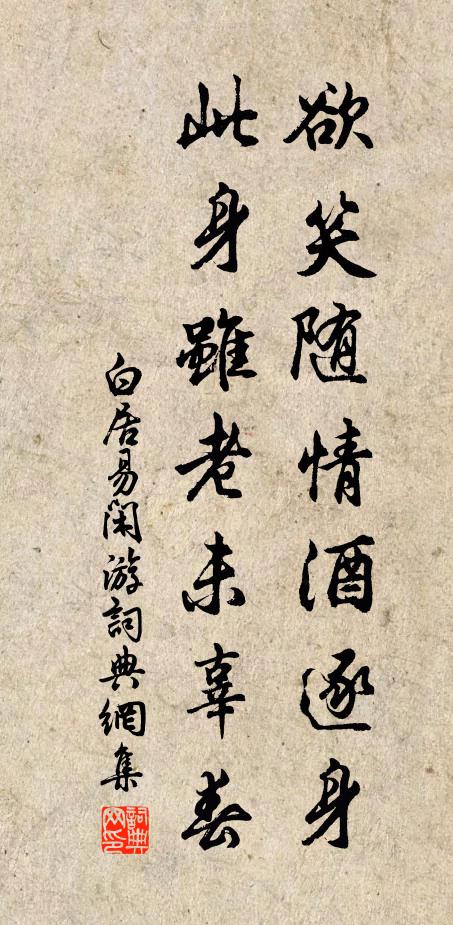 欲笑随情酒逐身
此身雖老未辜春
白居易閑游詞典網集
詞典
网印